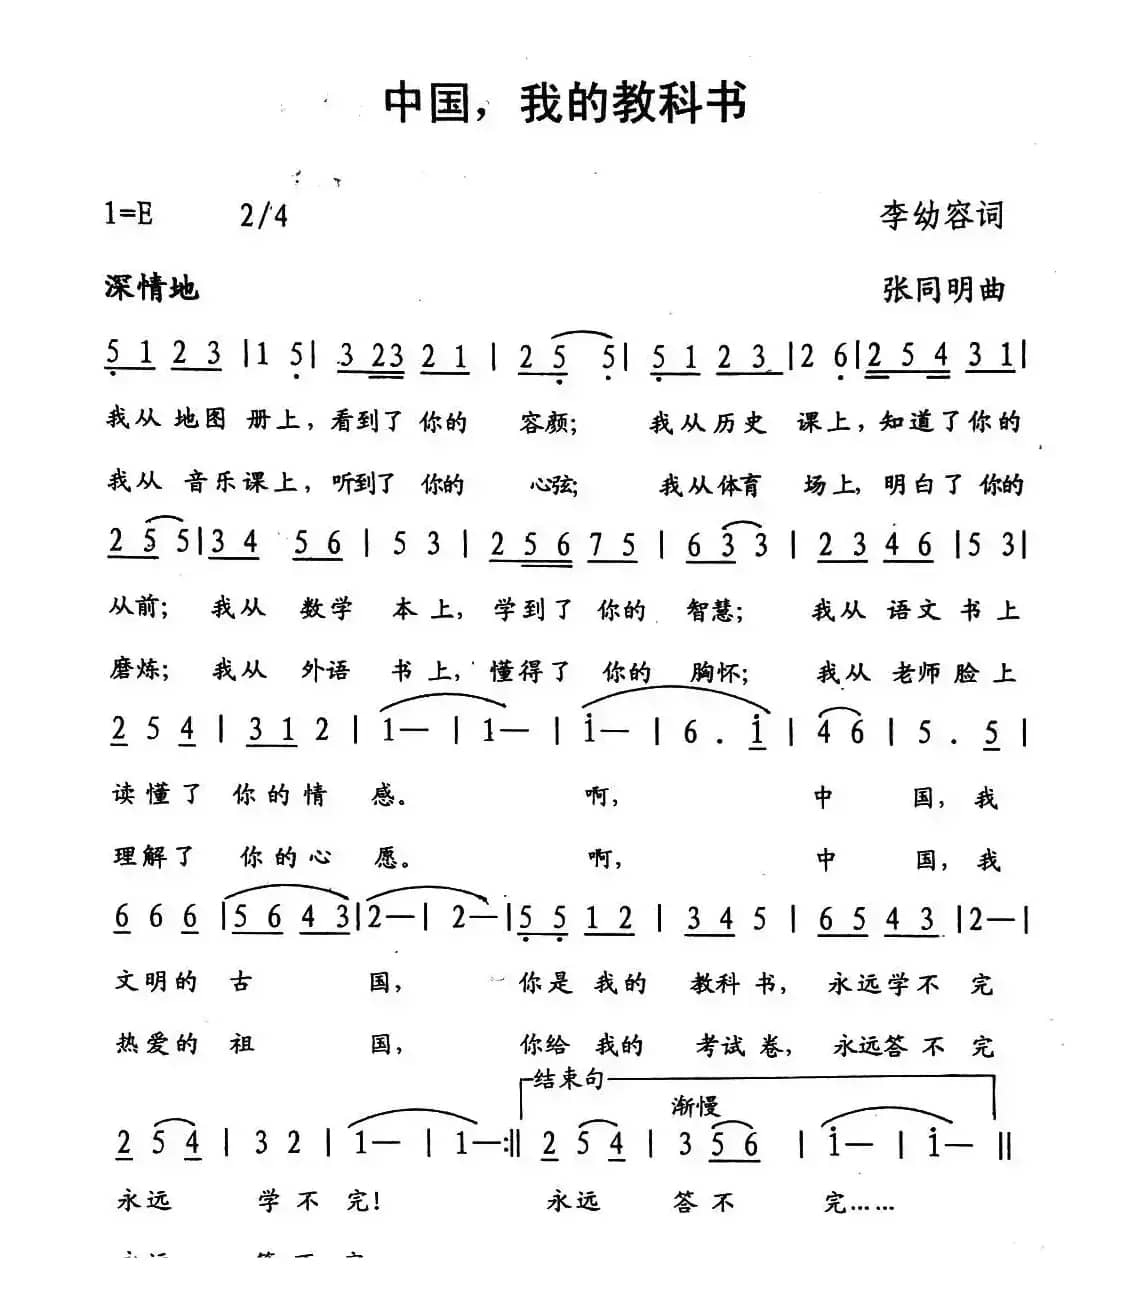 中国，我的教科书
1=E 2/4 李幼容词
深情地 张同明曲
5 1 2 3 | 1 5 | 3 23 2 1 | 2 5 5 | 5 1 2 3 | 2 6 | 2 5 4 3 1 |
我从 地图 册上，看到了 你的 容颜； 我从历史 课上，知道了你的
我从 音乐课上，听到了 你的 心弦； 我从体育 场上，明白了 你的
2 5 5 | 3 4 5 6 | 5 3 | 2 5 6 7 5 | 6 3 3 | 2 3 4 6 | 5 3 |
从前； 我从 数学 本上，学到了 你的 智慧； 我从 语文 书上
磨炼； 我从 外语 书上，懂得了 你的 胸怀； 我从 老师 脸上
2 5 4 | 3 1 2 2 | 1— | 1— | i— | 6 . i | 4 6 | 5 . 5 |
读懂了 你的情 感。 啊， 中 国，我
理解了 你的心 愿。 啊， 中 国，我
6 6 6 | 5 6 4 3 | 2— | 2— | 5 5 1 2 | 3 4 5 | 6 5 4 3 | 2— |
文明的 古 国， 你是 我的 教科书，永远学不 完
热爱的 祖 国， 你给 我的 考试卷，永远答不 完
结束句
渐慢
2 5 4 | 3 2 | 1— | 1— :|| 2 5 4 | 3 5 6 | i— | i— ||
永远 学不 完！ 永远 答不 完……